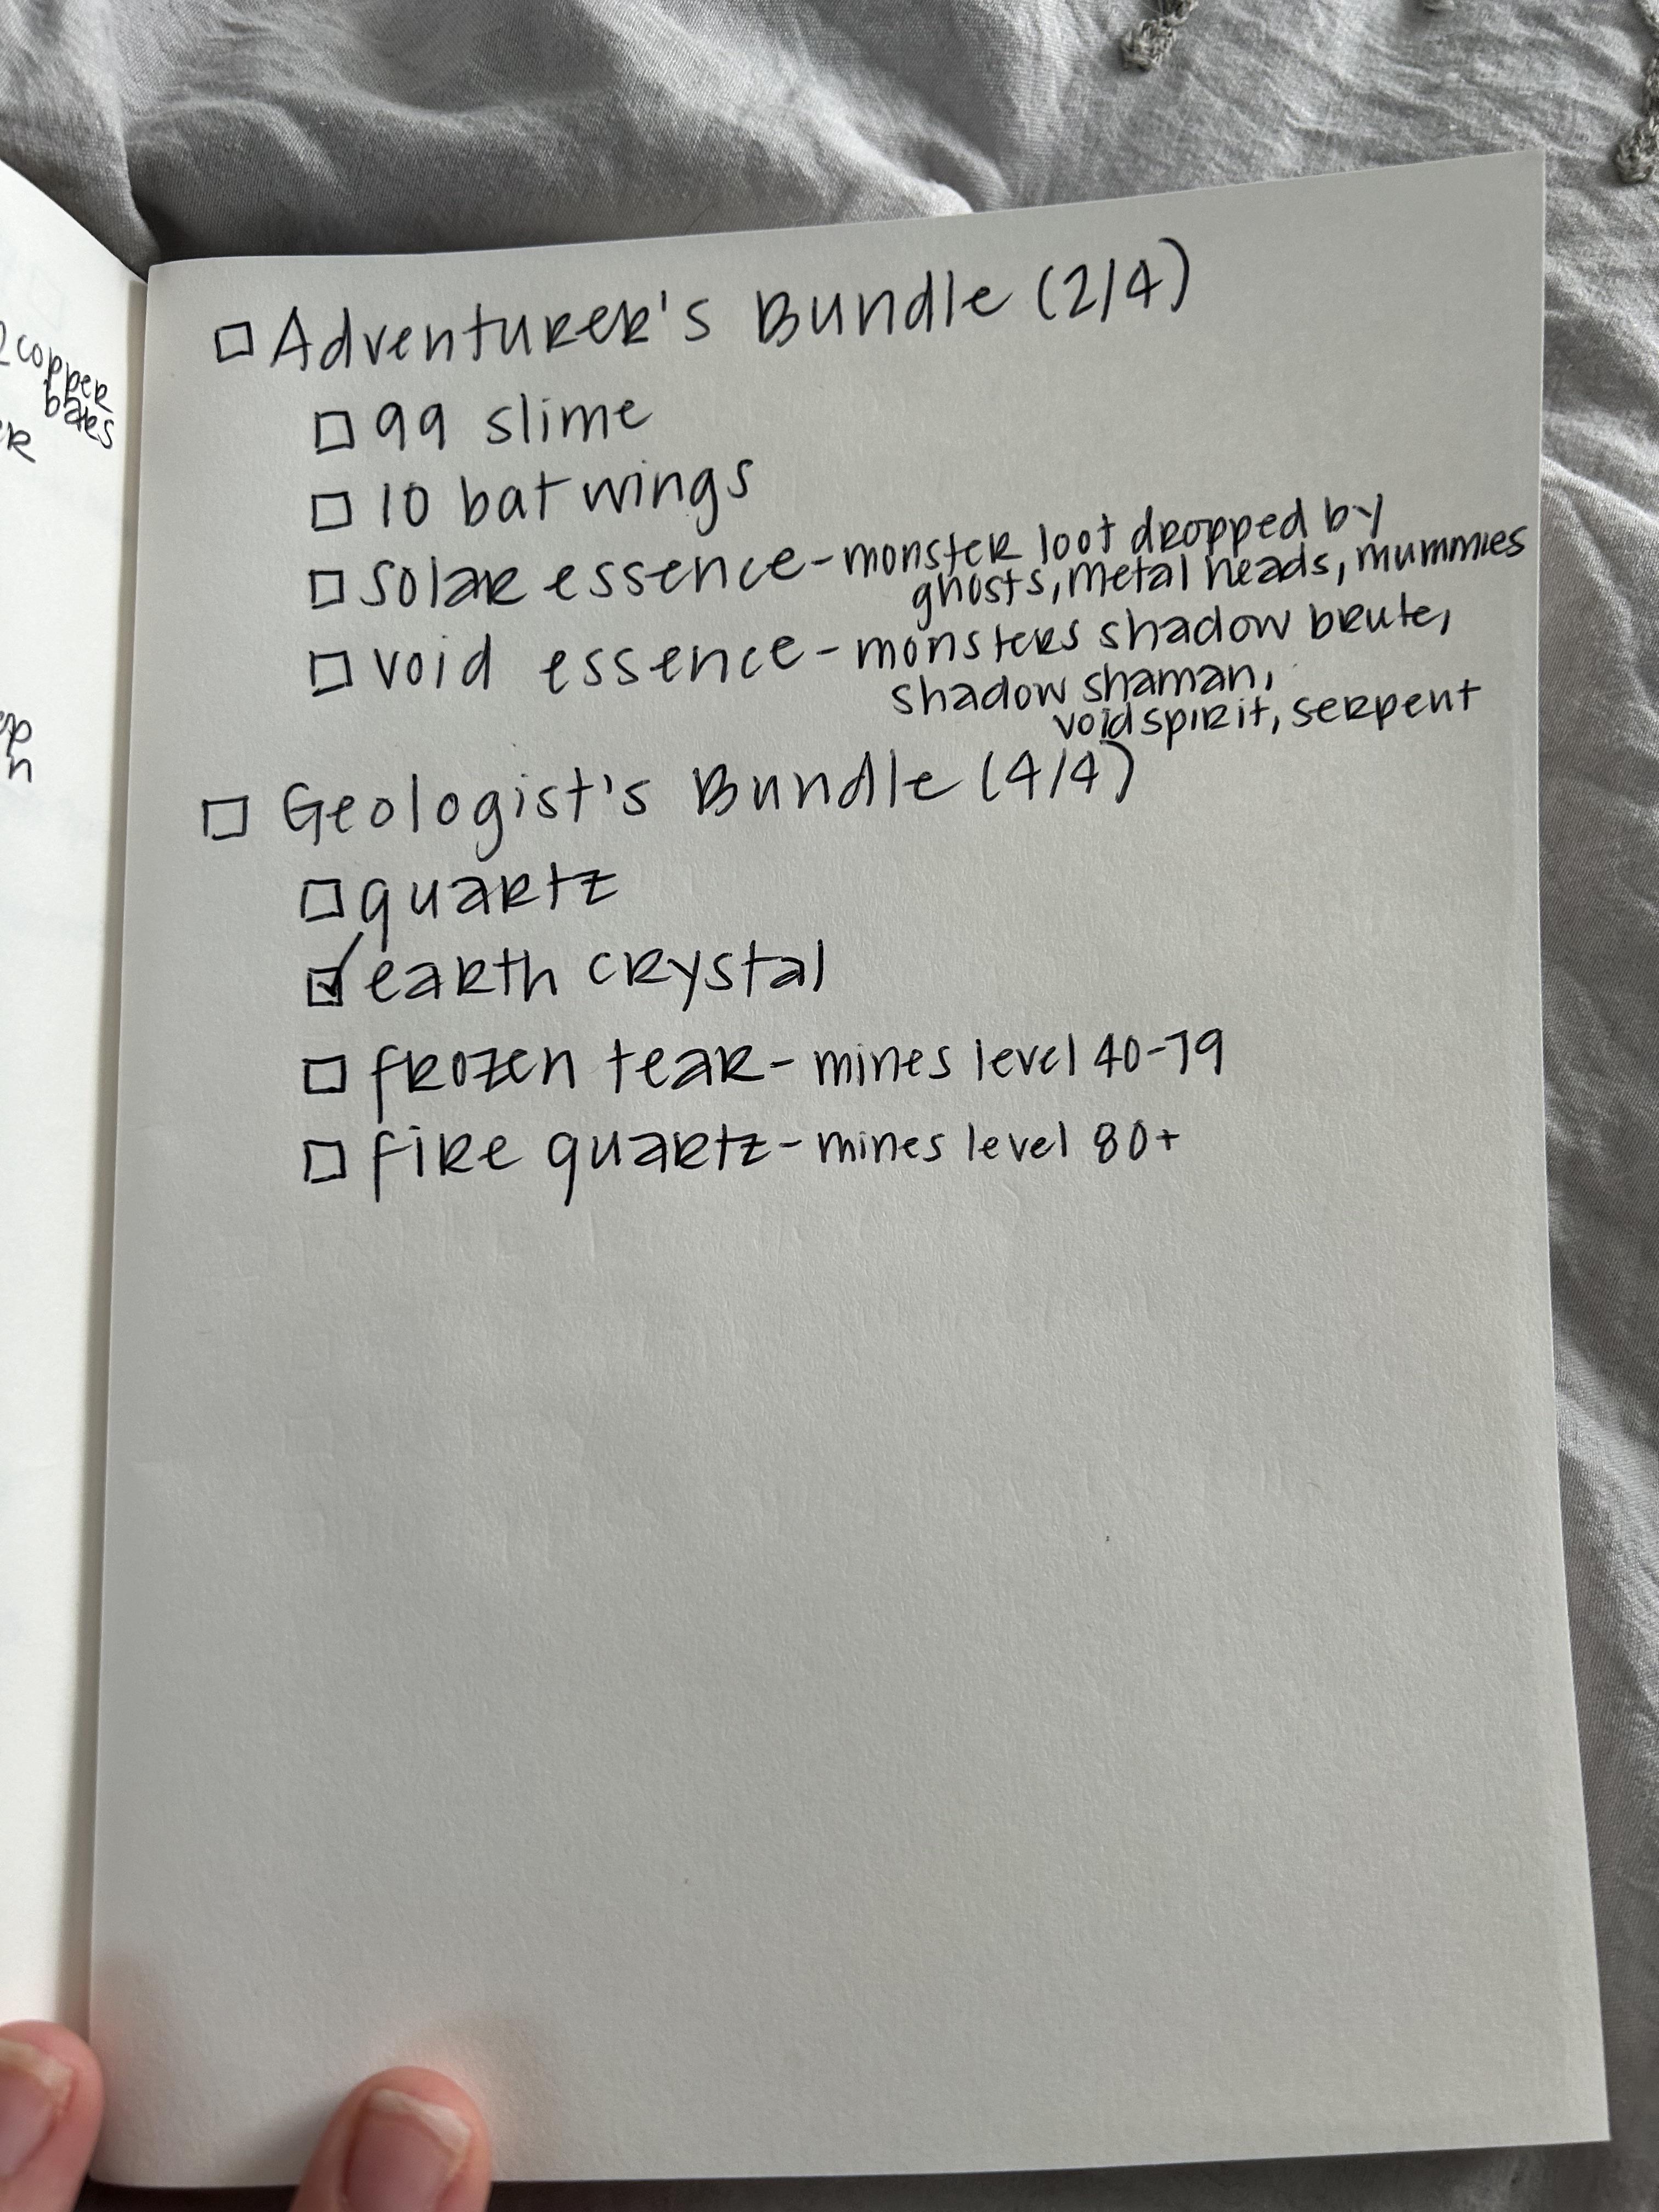 copper
bars
□ Adventurer's Bundle (2/4)
□ 99 slime
□ 10 bat wings
□ solar essence - monster loot dropped by
ghosts, metal heads, mummies
□ void essence - monsters shadow brute,
shadow shaman,
void spirit, serpent
□ Geologist's Bundle (4/4)
□ quartz
☑ earth crystal
□ frozen tear - mines level 40-79
□ fire quartz - mines level 80+